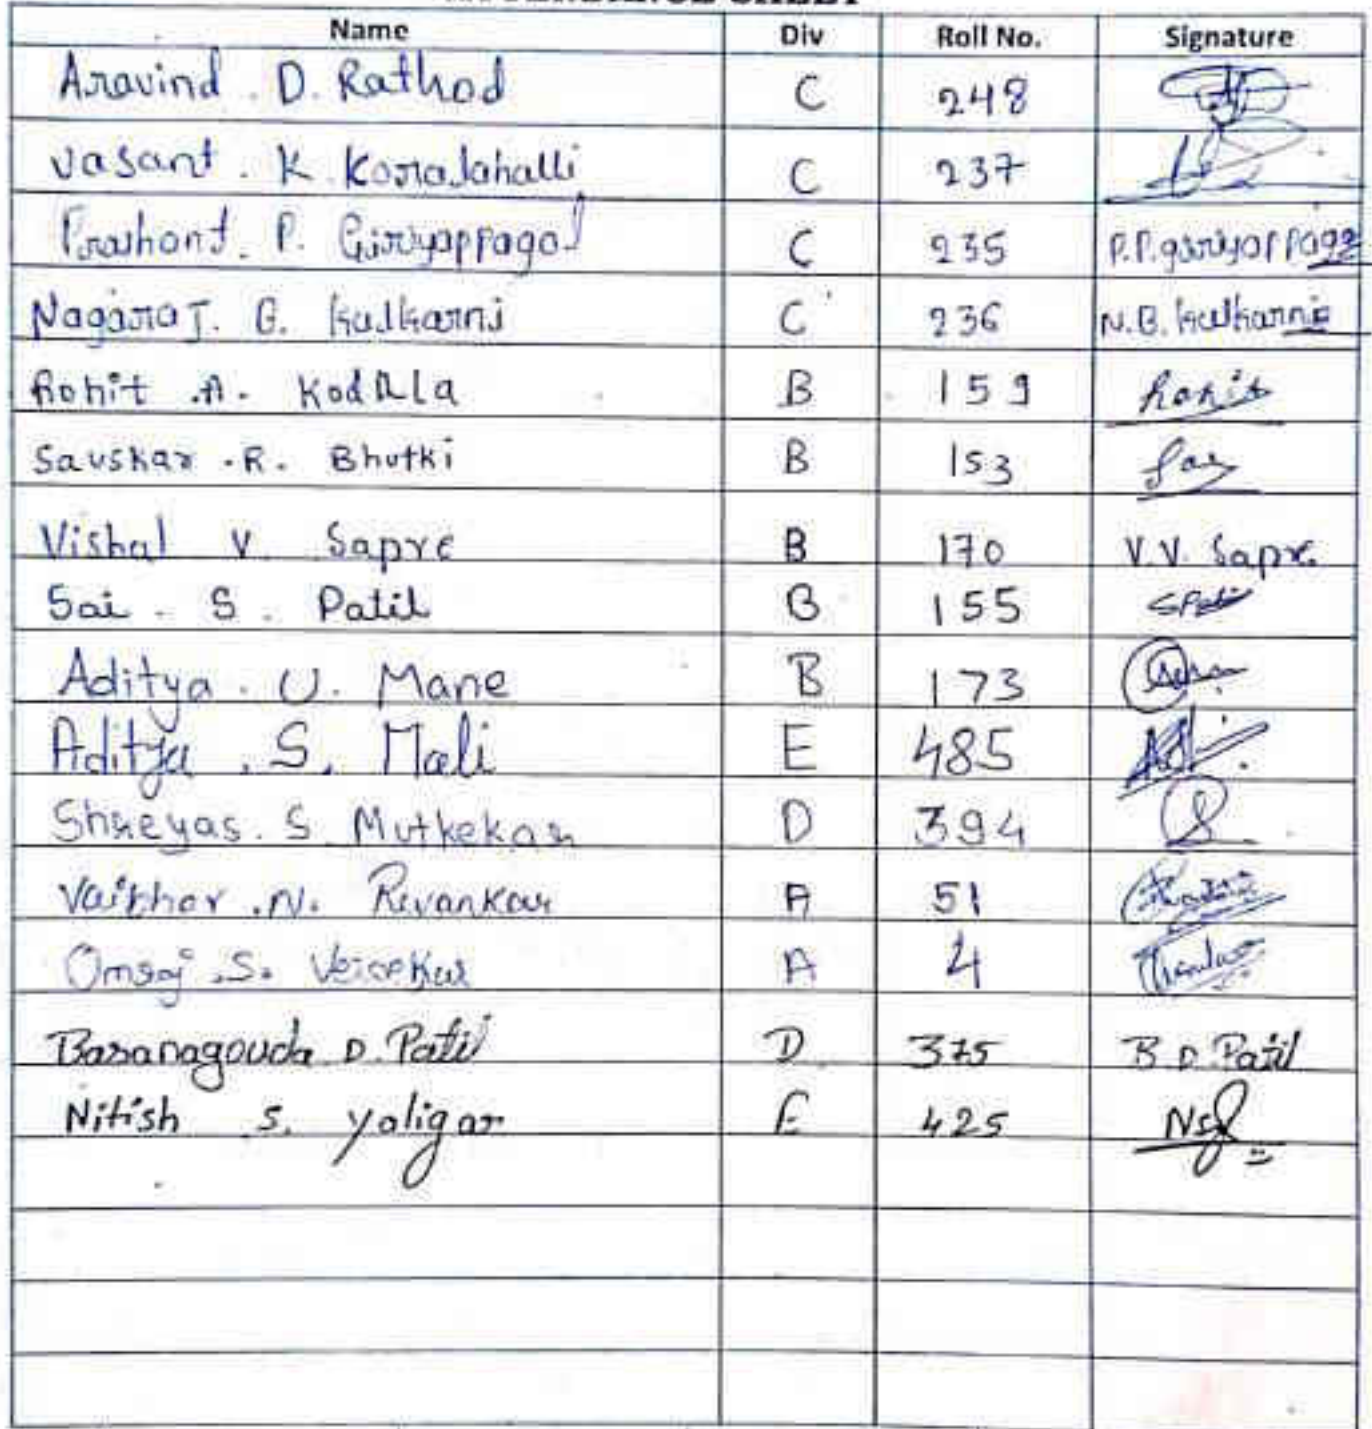 Name Div Roll No. Signature
Aravind . D. Rathod C 248
Vasant . K. Koralahalli C 237
Prashant . P. Giriyappagol C 235 P.P.giriyappagol
Nagaraj . G. Kulkarni C 236 N.G. Kulkarni
Rohit .A. B 159 Rohit
Sauskar .R. Bhutki B 153
Vishal V. Sapre B 170 V.V. Sapre.
Sai . S . Patil B 155 SPatil
Aditya . U. Mane B 173
Aditya . S. Mali E 485
Shreyas . S. Mutkekar D 394
Vaibhav .N. Revankar A 51
Omraj .S. A 4
Basanagouda D. Patil D 375 B.D. Patil
Nitish S. Yaligar E 425